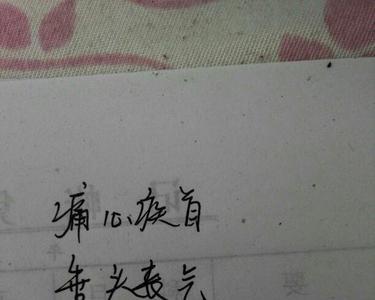 痛心疾首
垂头丧气